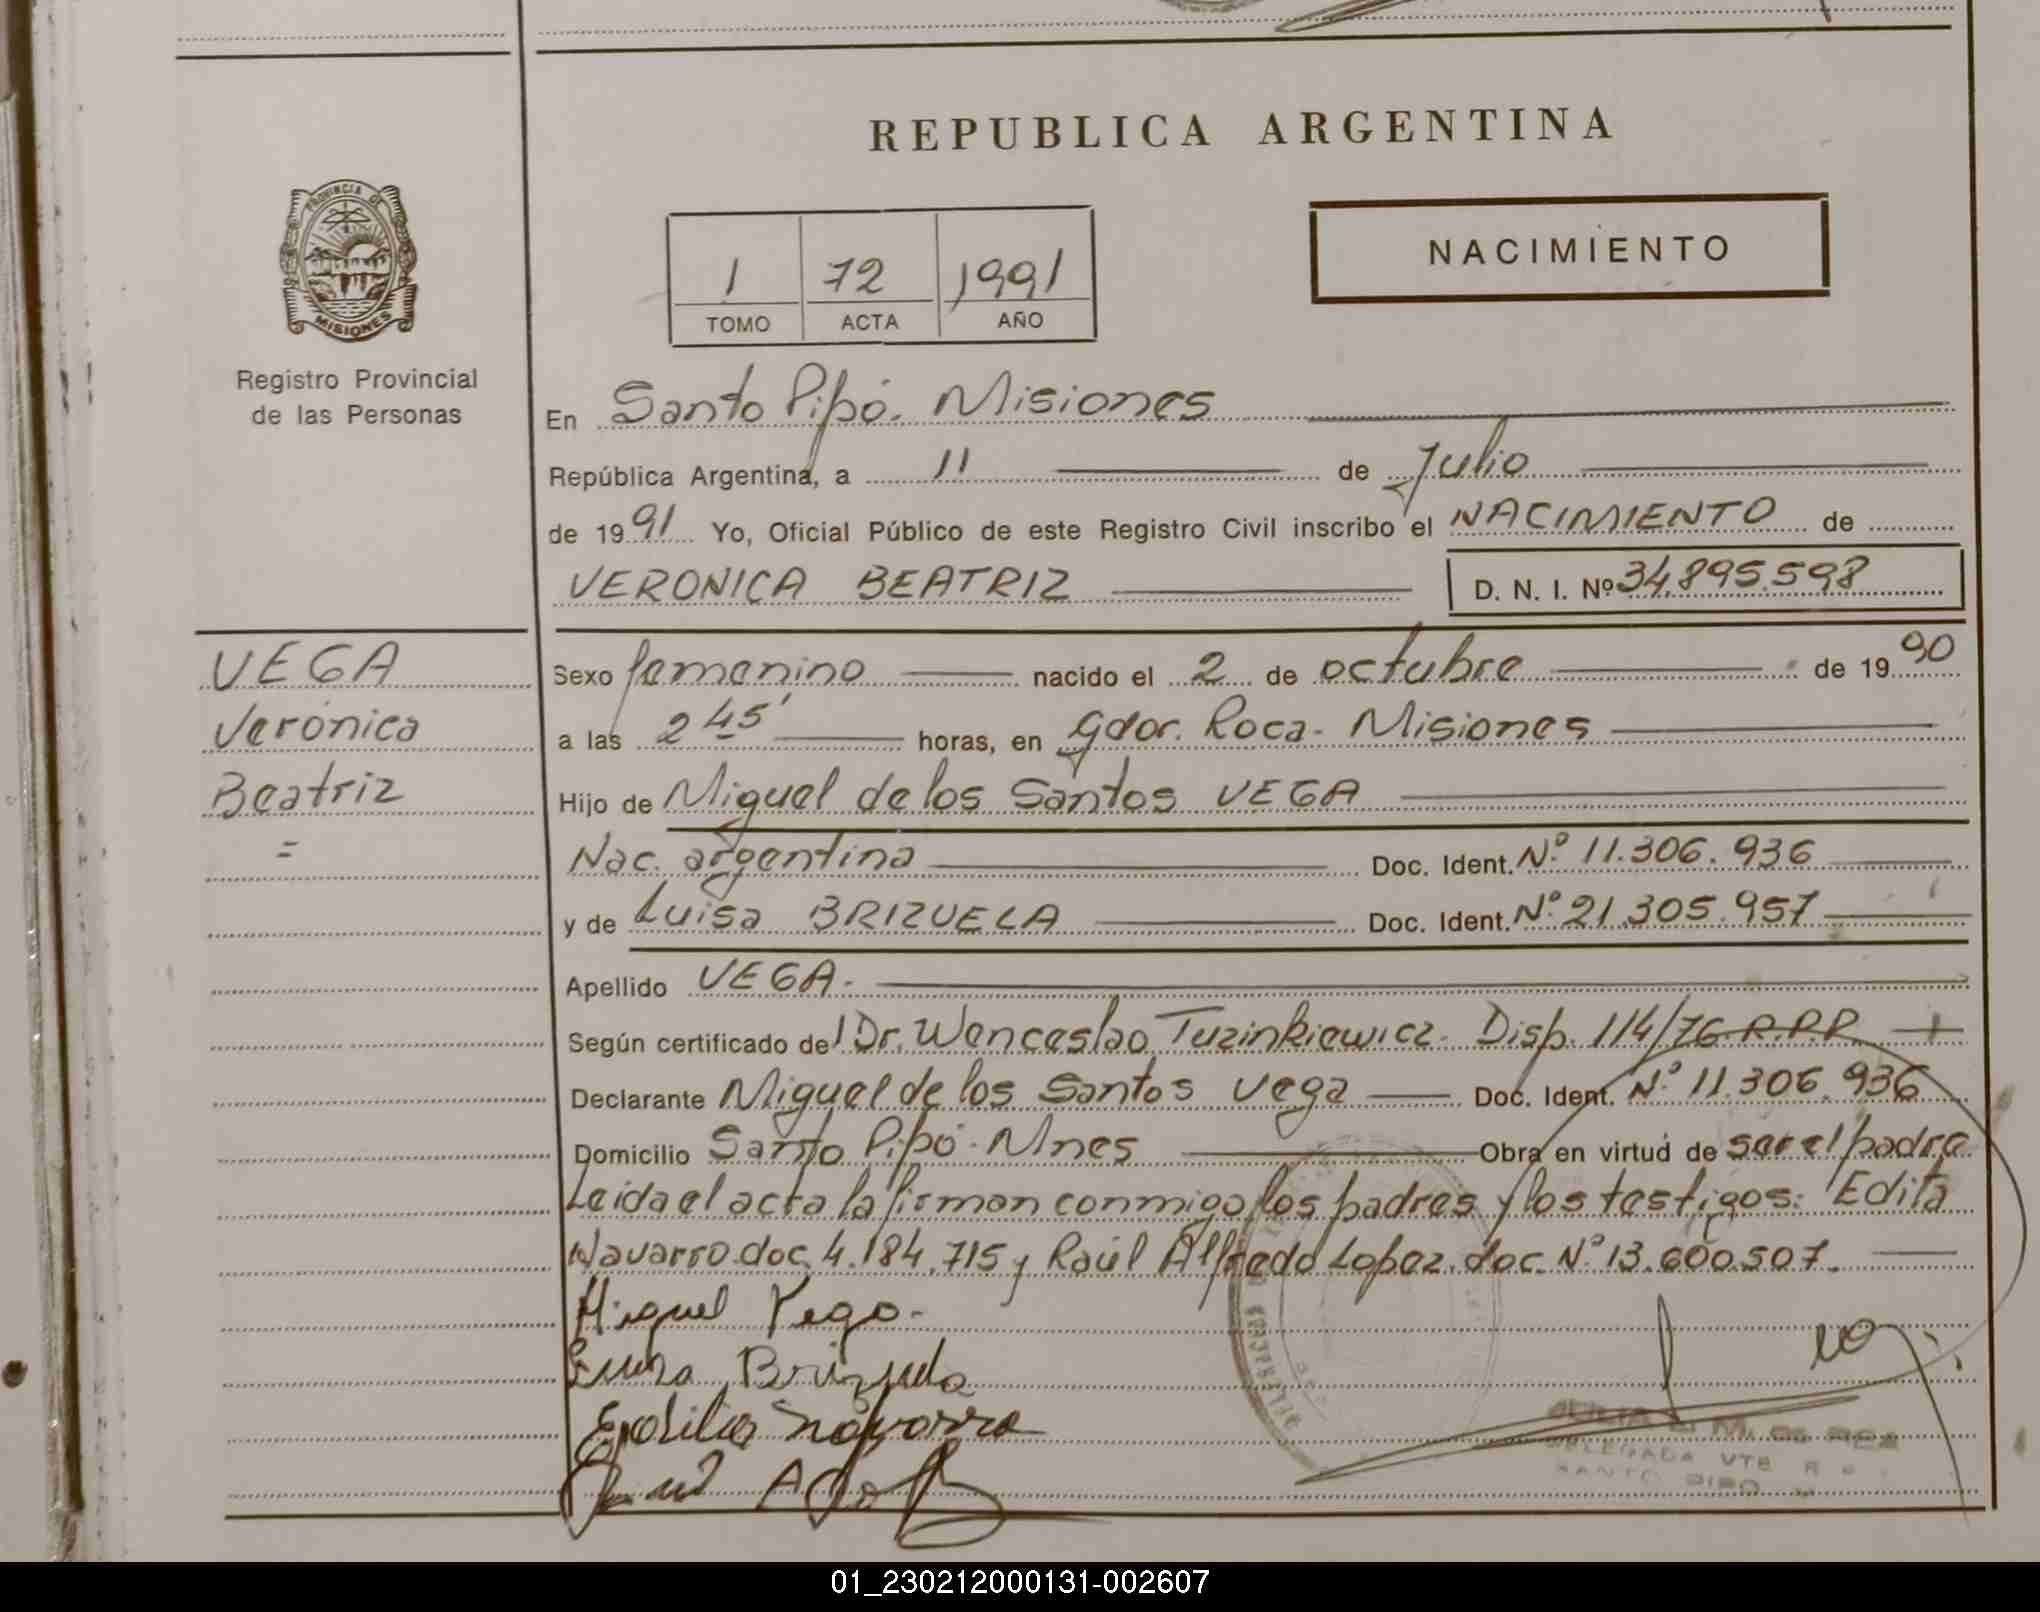 REPUBLICA ARGENTINA
PROVINCIA DE
MISIONES
Registro Provincial
de las Personas
1 72 1991
TOMO ACTA AÑO
NACIMIENTO
En Santo Pipó. Misiones
República Argentina, a 11 de Julio
de 1991 Yo, Oficial Público de este Registro Civil inscribo el NACIMIENTO de
VERONICA BEATRIZ D. N. I. Nº 34.895.598
VEGA
Verónica
Beatriz
=
Sexo femenino nacido el 2 de octubre de 1990
a las 2 45' horas, en Gdor. Roca - Misiones
Hijo de Miguel de los Santos VEGA
Nac. argentina Doc. Ident. Nº 11.306.936
y de Luisa BRIZUELA Doc. Ident. Nº 21.305.957
Apellido VEGA.
Según certificado del Dr. Wenceslao Tuzinkiewicz. Disp. 114/76 R.P.P.
Declarante Miguel de los Santos Vega Doc. Ident. Nº 11.306.936
Domicilio Santo Pipó - Mnes Obra en virtud de ser el padre
Leida el acta la firman conmigo los padres y los testigos: Edita
Navarro doc. 4.184.715 y Raúl Alfredo Lopez. doc. Nº 13.600.507.
Miguel Vega.
Brizuela
DELEGADA
SANTO PIPO
01_230212000131-002607